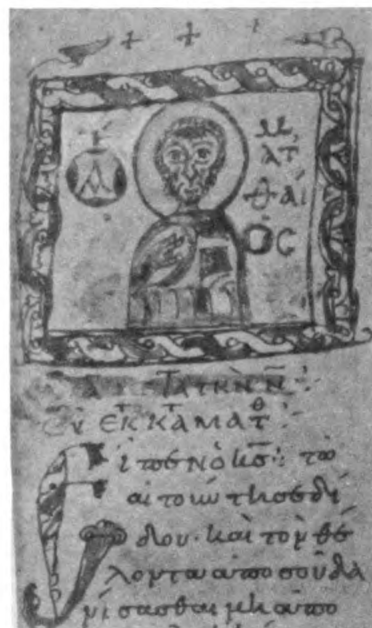 + + +
Μ
ΑΤ
ΘΑΪ
ΟС
ΕΚ Κ̅ΤΑ ΜΑΤΘ
Εἶπεν ὁ κ̅σ̅: τῶ
αἰτοῦντί σε δί
δου· καὶ τὸν θέ
λοντα ἀπο σοῦ δα
νίσασθαι μὴ ἀπο